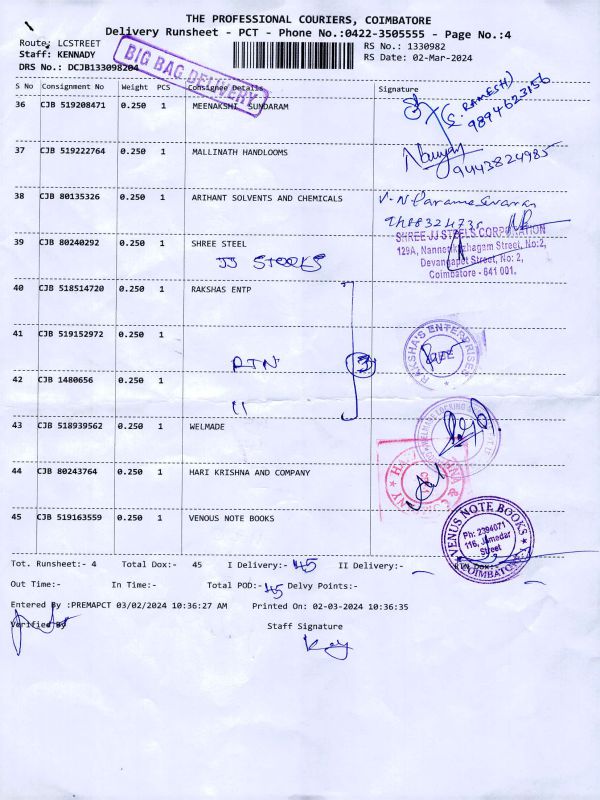 THE PROFESSIONAL COURIERS, COIMBATORE
Delivery Runsheet - PCT - Phone No.:0422-3505555 - Page No.:4
Route: LCSTREET
RS No.: 1330982
Staff: KENNADY
RS Date: 02-Mar-2024
DRS No.: DCJB133098204
BIG BAG DELIVERY
S No Consignment No Weight PCS Consignee Details Signature
36 CJB 519208471 0.250 1 MEENAKSHI SUNDARAM
(RAMESH)
9894623156
37 CJB 519222764 0.250 1 MALLINATH HANDLOOMS
9443824985
38 CJB 80135326 0.250 1 ARIHANT SOLVENTS AND CHEMICALS
39 CJB 80240292 0.250 1 SHREE STEEL
JJ STEELS
SHREE JJ STEELS CORPORATION
Street, No:2,
Devangapet Street, No: 2,
Coimbatore - 641 001.
40 CJB 518514720 0.250 1 RAKSHAS ENTP
41 CJB 519152972 0.250 1
RTN
3
RAKSHA'S ENTERPRISES
42 CJB 1480656 0.250 1
"
43 CJB 518939562 0.250 1 WELMADE
44 CJB 80243764 0.250 1 HARI KRISHNA AND COMPANY
45 CJB 519163559 0.250 1 VENOUS NOTE BOOKS
VENUS NOTE BOOKS
Ph: 2394071
116, Jamedar
Street
COIMBATORE
Tot. Runsheet:- 4 Total Dox:- 45 I Delivery:- 45 II Delivery:- RTN Dox:-
Out Time:- In Time:- Total POD:- 45 Delvy Points:-
Entered By :PREMAPCT 03/02/2024 10:36:27 AM Printed On: 02-03-2024 10:36:35
Verified By Staff Signature